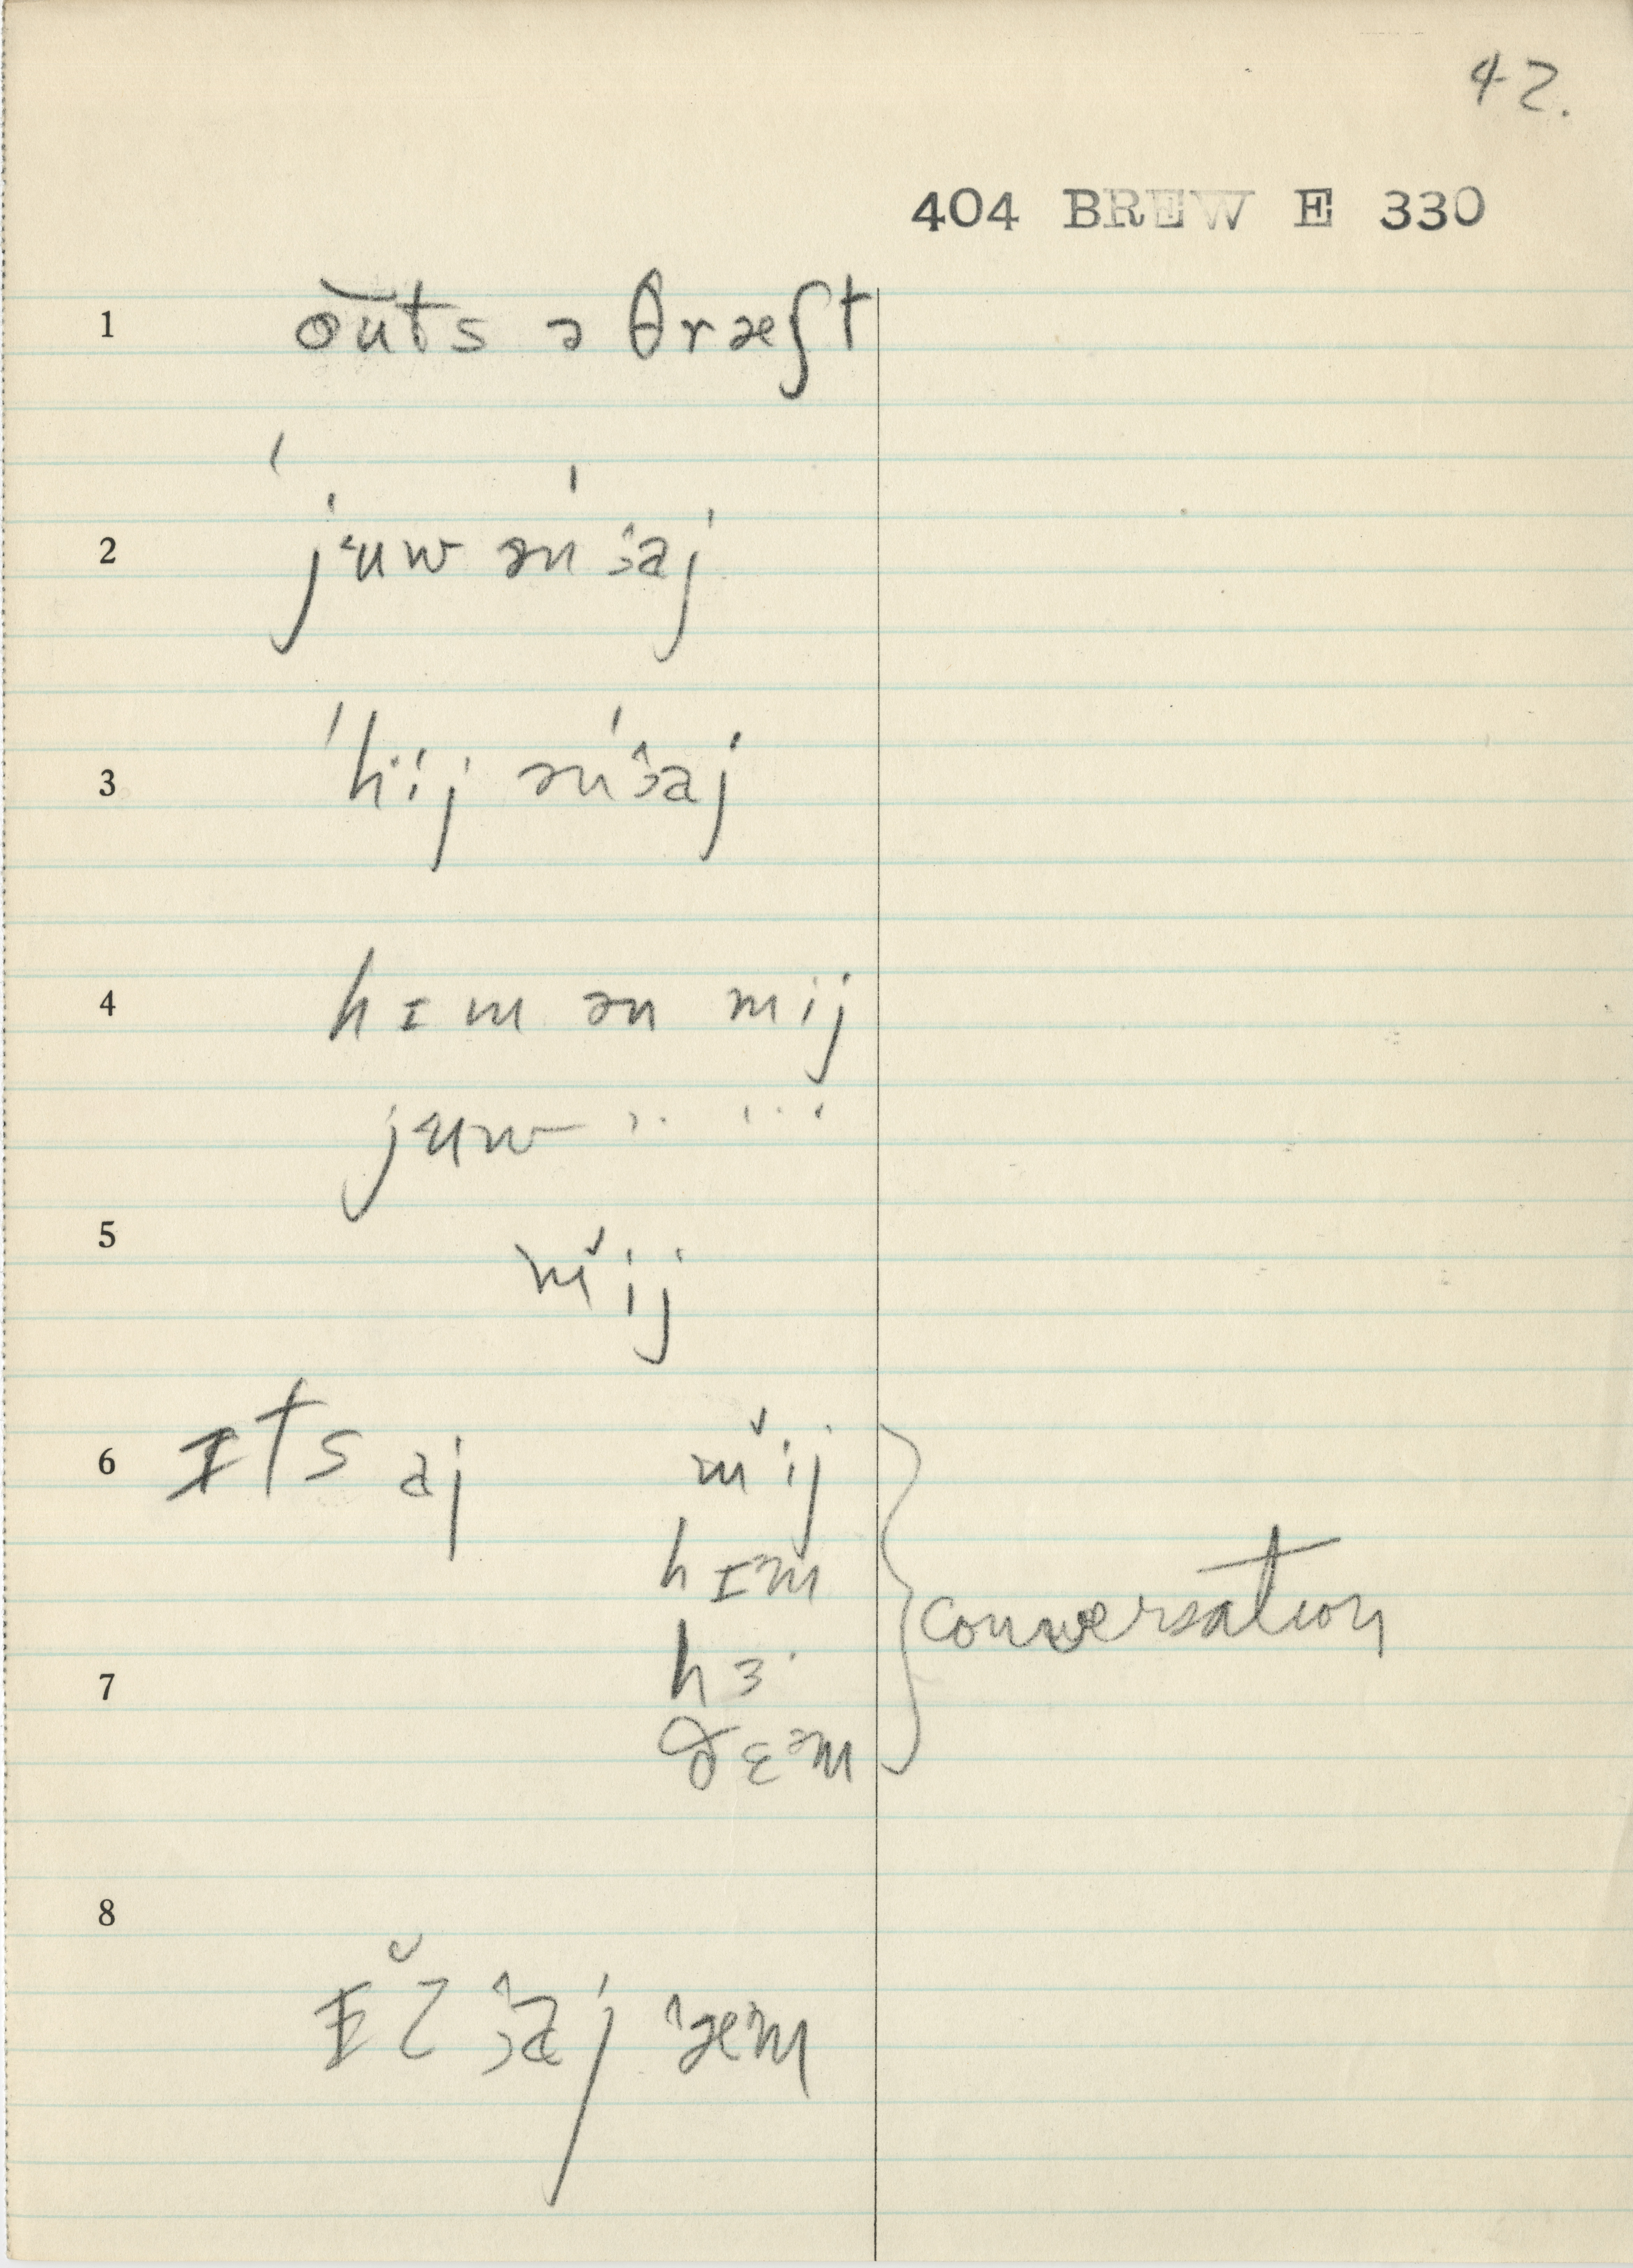 42.
404 BREW E 330
1 outs ə θræʃt
2 ˈjᵻuw ən ˈɜaj
3 ˈhij ən ˈɜaj
4 hɪm ən mij
juw
5 mˇij
6 ɪts aj mˇij
hɪm
7 hɜ·
ðɛᵊm
conversation
8 ɪˇz ɜaj ˈæᵊm